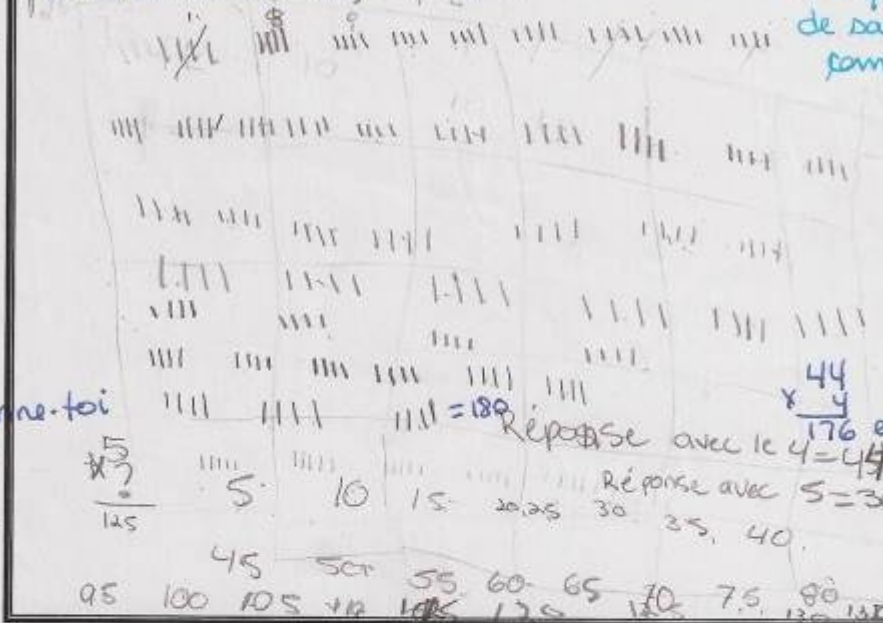 de sa
com
ne-toi
= 180
44
x 4
176
Réponse avec le 4 = 44
5
x ?
125
5 10 15 20, 25 30 35, 40.
Réponse avec 5 = 3
45 50 55 60 65 70 75 80
95 100 105